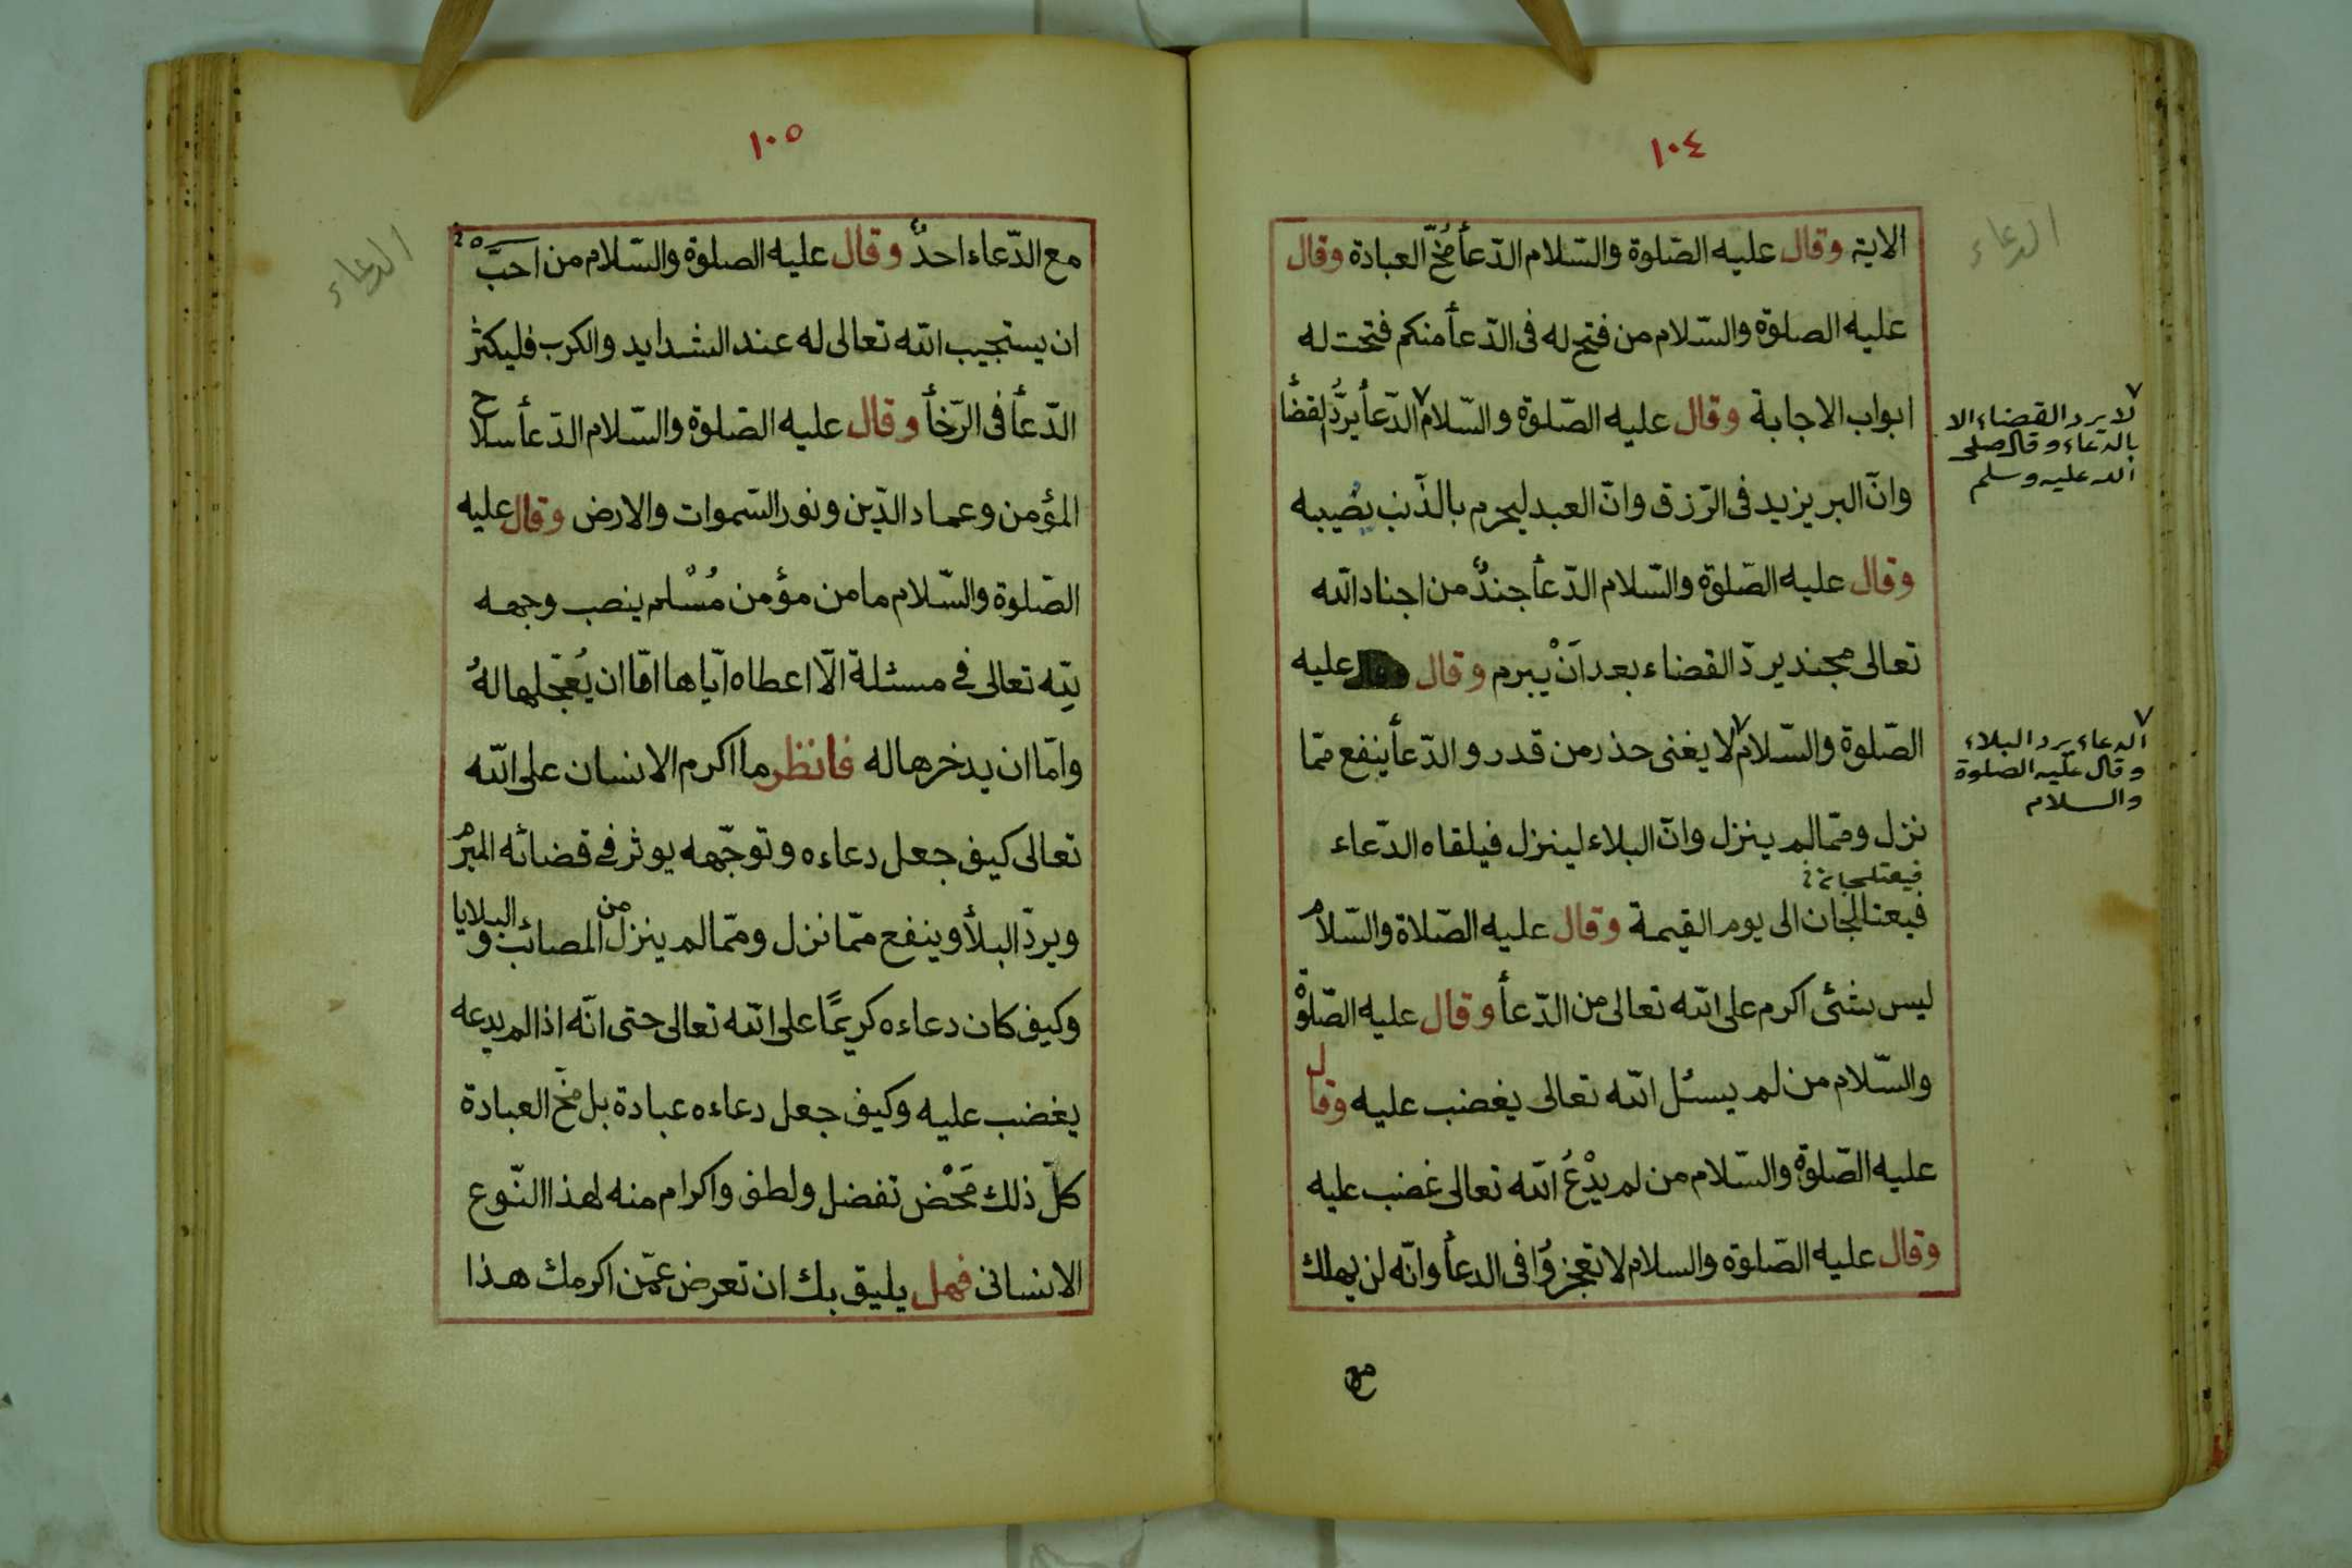 ١٠٤
الدعاء
الاية وقال عليه الصّلوة والسّلام الدّعأ مُخّ العبادة وقال
عليه الصلوة والسّلام من فتح له فى الدّعأ منكم فتحت له
ابواب الاجابة وقال عليه الصّلوة والسّلام٧ الدّعأ يردُّ القضأ
٧ لا يرد القضاء الا
بالدعاء وقال صلى
الله عليه وسلم
وانّ البر يزيد فى الرّزق وانّ العبد ليحرم بالذّنب يصيبه
وقال عليه الصّلوة والسّلام الدّعأ جندٌ من اجناد الله
تعالى مجند يردّ القضاء بعد اَنْ يبرم وقال عليه
الصّلوة والسّلام٧ لا يغنى حذر من قدر والدّعأ ينفع ممّا
٧ الدعاء يرد البلاء
وقال عليه الصلوة
والسلام
نزل وممّا لم ينزل وانّ البلاء لينزل فيلقاه الدّعاء
فيعتلجان
فيعتالجان الى يوم القيمة وقال عليه الصّلاة والسّلام
ليس بشئى اكرم على الله تعالى من الدّعأ وقال عليه الصّلوة
والسّلام من لم يسئل الله تعالى يغضب عليه وقال
عليه الصّلوة والسّلام من لم يدْعُ الله تعالى غضب عليه
وقال عليه الصّلوة والسلام لا تعجزوُا فى الدعأ وانّه لن يهلك
مع
١٠٥
الدعاء
مع الدّعاء احدٌ وقال عليه الصلوة والسّلام من احبَّ
ان يستجيب الله تعالى له عند الشدايد والكرب فليكثر
الدّعأ فى الرّخأ وقال عليه الصّلوة والسّلام الدّعأ سلاح
المؤمن وعماد الدّين ونور السّموات والارض وقال عليه
الصّلوة والسّلام ما من مؤمن مُسْلم ينصب وجهه
لِلّه تعالى فى مسئلة الّا اعطاه ايّاها امّا ان يُعجّلها لهُ
وامّا ان يدخرها له فانظر ما اكرم الانسان على الله
تعالى كيف جعل دعاءه وتوجّهه يوثر فى قضائه المبرم
ويردّ البلأ وينفع ممّا نزل وممّا لم ينزل من المصائب والبلايا
وكيف كان دعاءه كريمًا على الله تعالى حتى انّه اذا لم يدعه
يغضب عليه وكيف جعل دعاءه عبادة بل مخّ العبادة
كلّ ذلك مَحْض تفضل ولطف واكرام منه لهذا النّوع
الانسانى فهل يليق بك ان تعرض عمّن اكرمك هذا